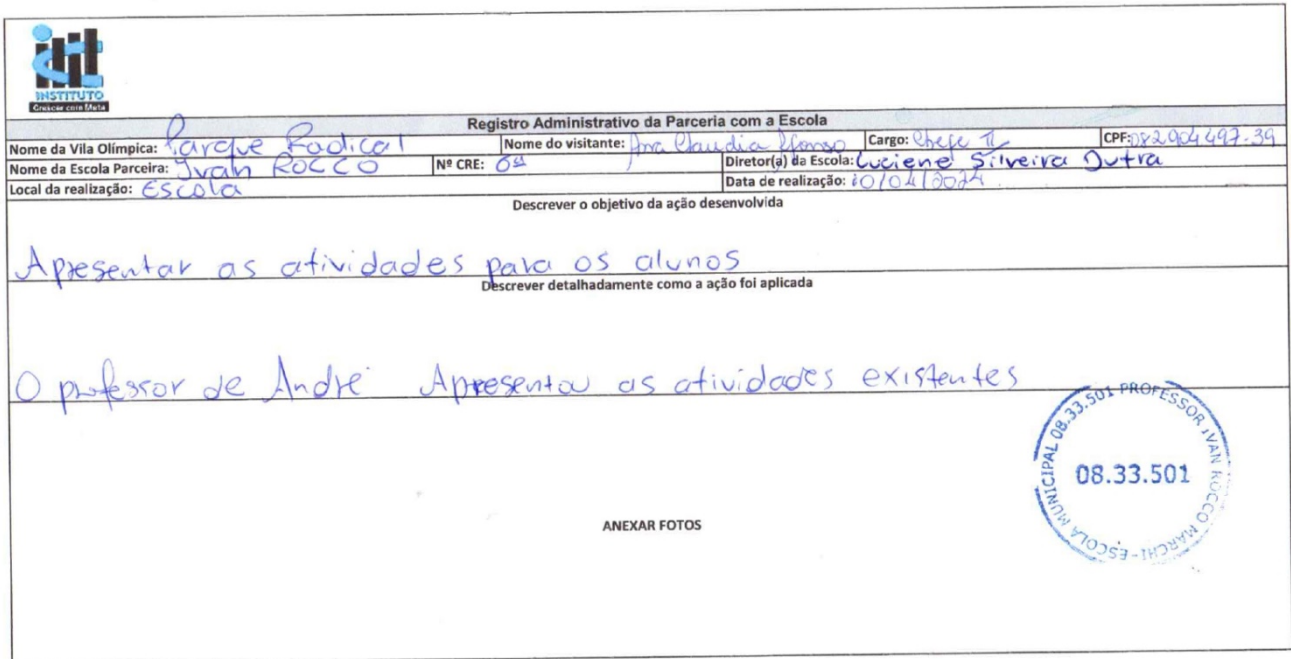 INSTITUTO
Crescer com Meta
Registro Administrativo da Parceria com a Escola
Nome da Vila Olímpica: Parque Radical Nome do visitante: Ana Claudia Afonso Cargo: Chefe II CPF: 082904497-39
Nome da Escola Parceira: Ivan ROCCO Nº CRE: 6ª Diretor(a) da Escola: Luciene Silveira Dutra
Local da realização: Escola Data de realização: 10/04/2024
Descrever o objetivo da ação desenvolvida
Apresentar as atividades para os alunos
Descrever detalhadamente como a ação foi aplicada
O professor de André Apresentou as atividades existentes
ESCOLA MUNICIPAL 08.33.501 PROFESSOR IVAN ROCCO MARCHI-
08.33.501
ANEXAR FOTOS